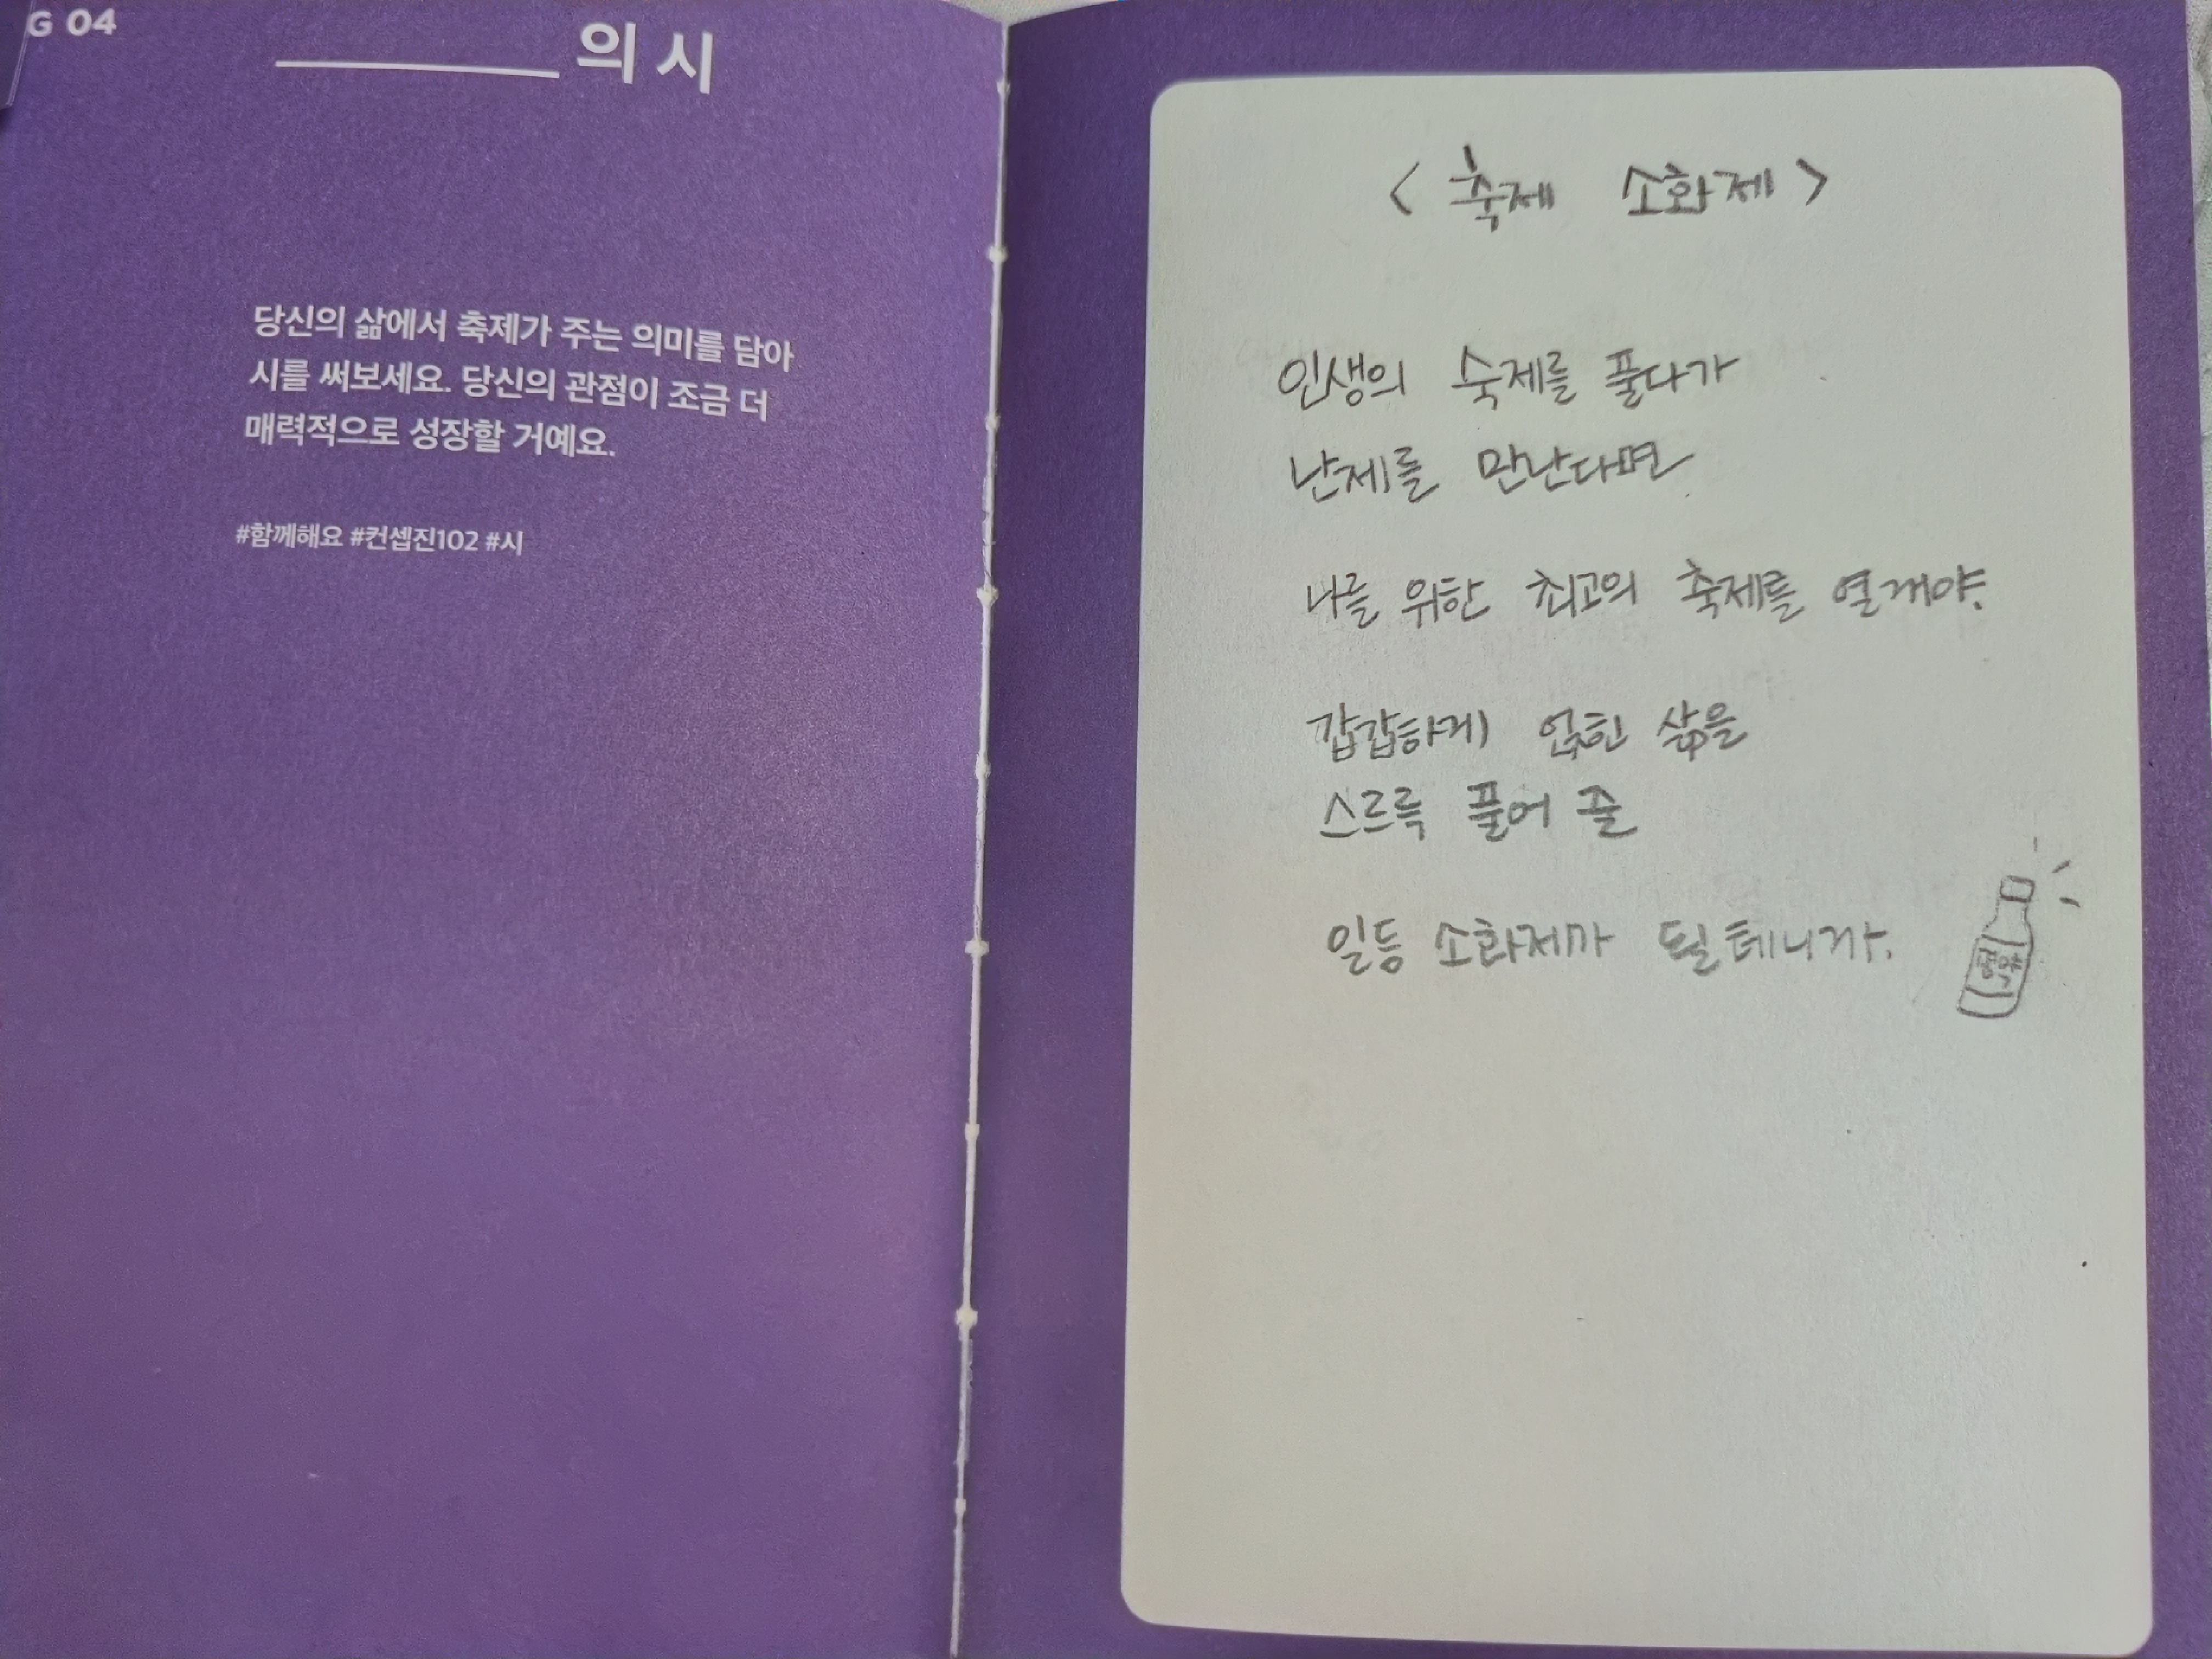 G 04
의 시
당신의 삶에서 축제가 주는 의미를 담아
시를 써보세요. 당신의 관점이 조금 더
매력적으로 성장할 거예요.
#함께해요 #컨셉진102 #시
< 축제 소화제 >
인생의 숙제를 풀다가
난제를 만난다면
나를 위한 최고의 축제를 열거야.
갑갑하게 얹힌 삶을
스르륵 풀어 줄
일등 소화제가 될테니까.
명약